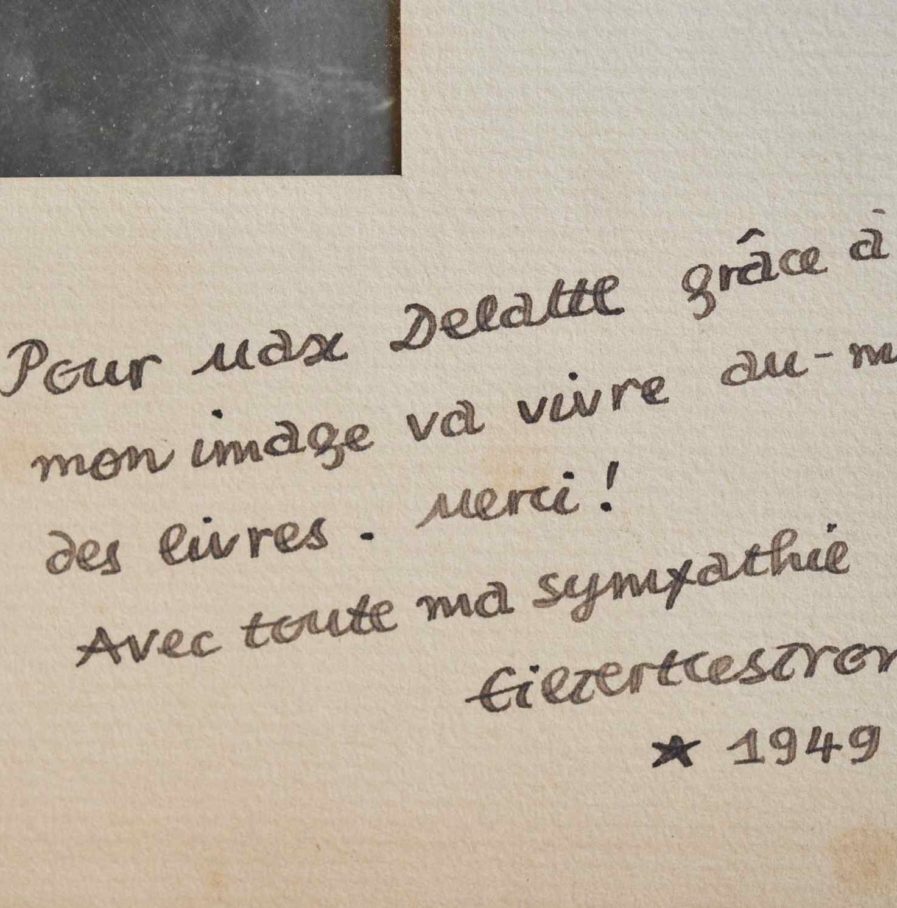 Pour Max Delatte grâce à
mon image va vivre au-m
des livres. Merci !
Avec toute ma sympathie
Gilbert Cesbron
★ 1949